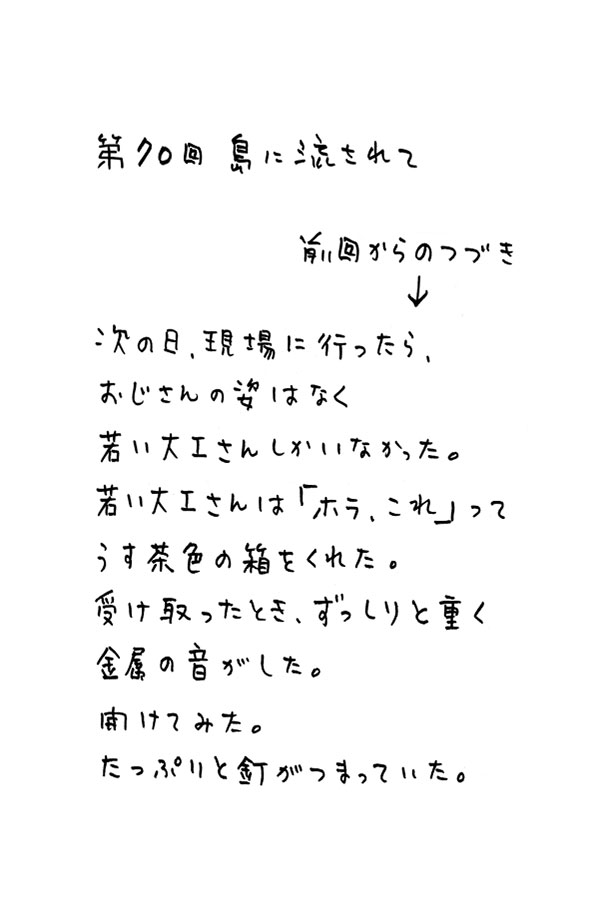 第70回 島に流されて
前回からのつづき
↓
次の日、現場に行ったら、
おじさんの姿はなく
若い大工さんしかいなかった。
若い大工さんは「ホラ、これ」って
うす茶色の箱をくれた。
受け取ったとき、ずっしりと重く
金属の音がした。
開けてみた。
たっぷりと釘がつまっていた。